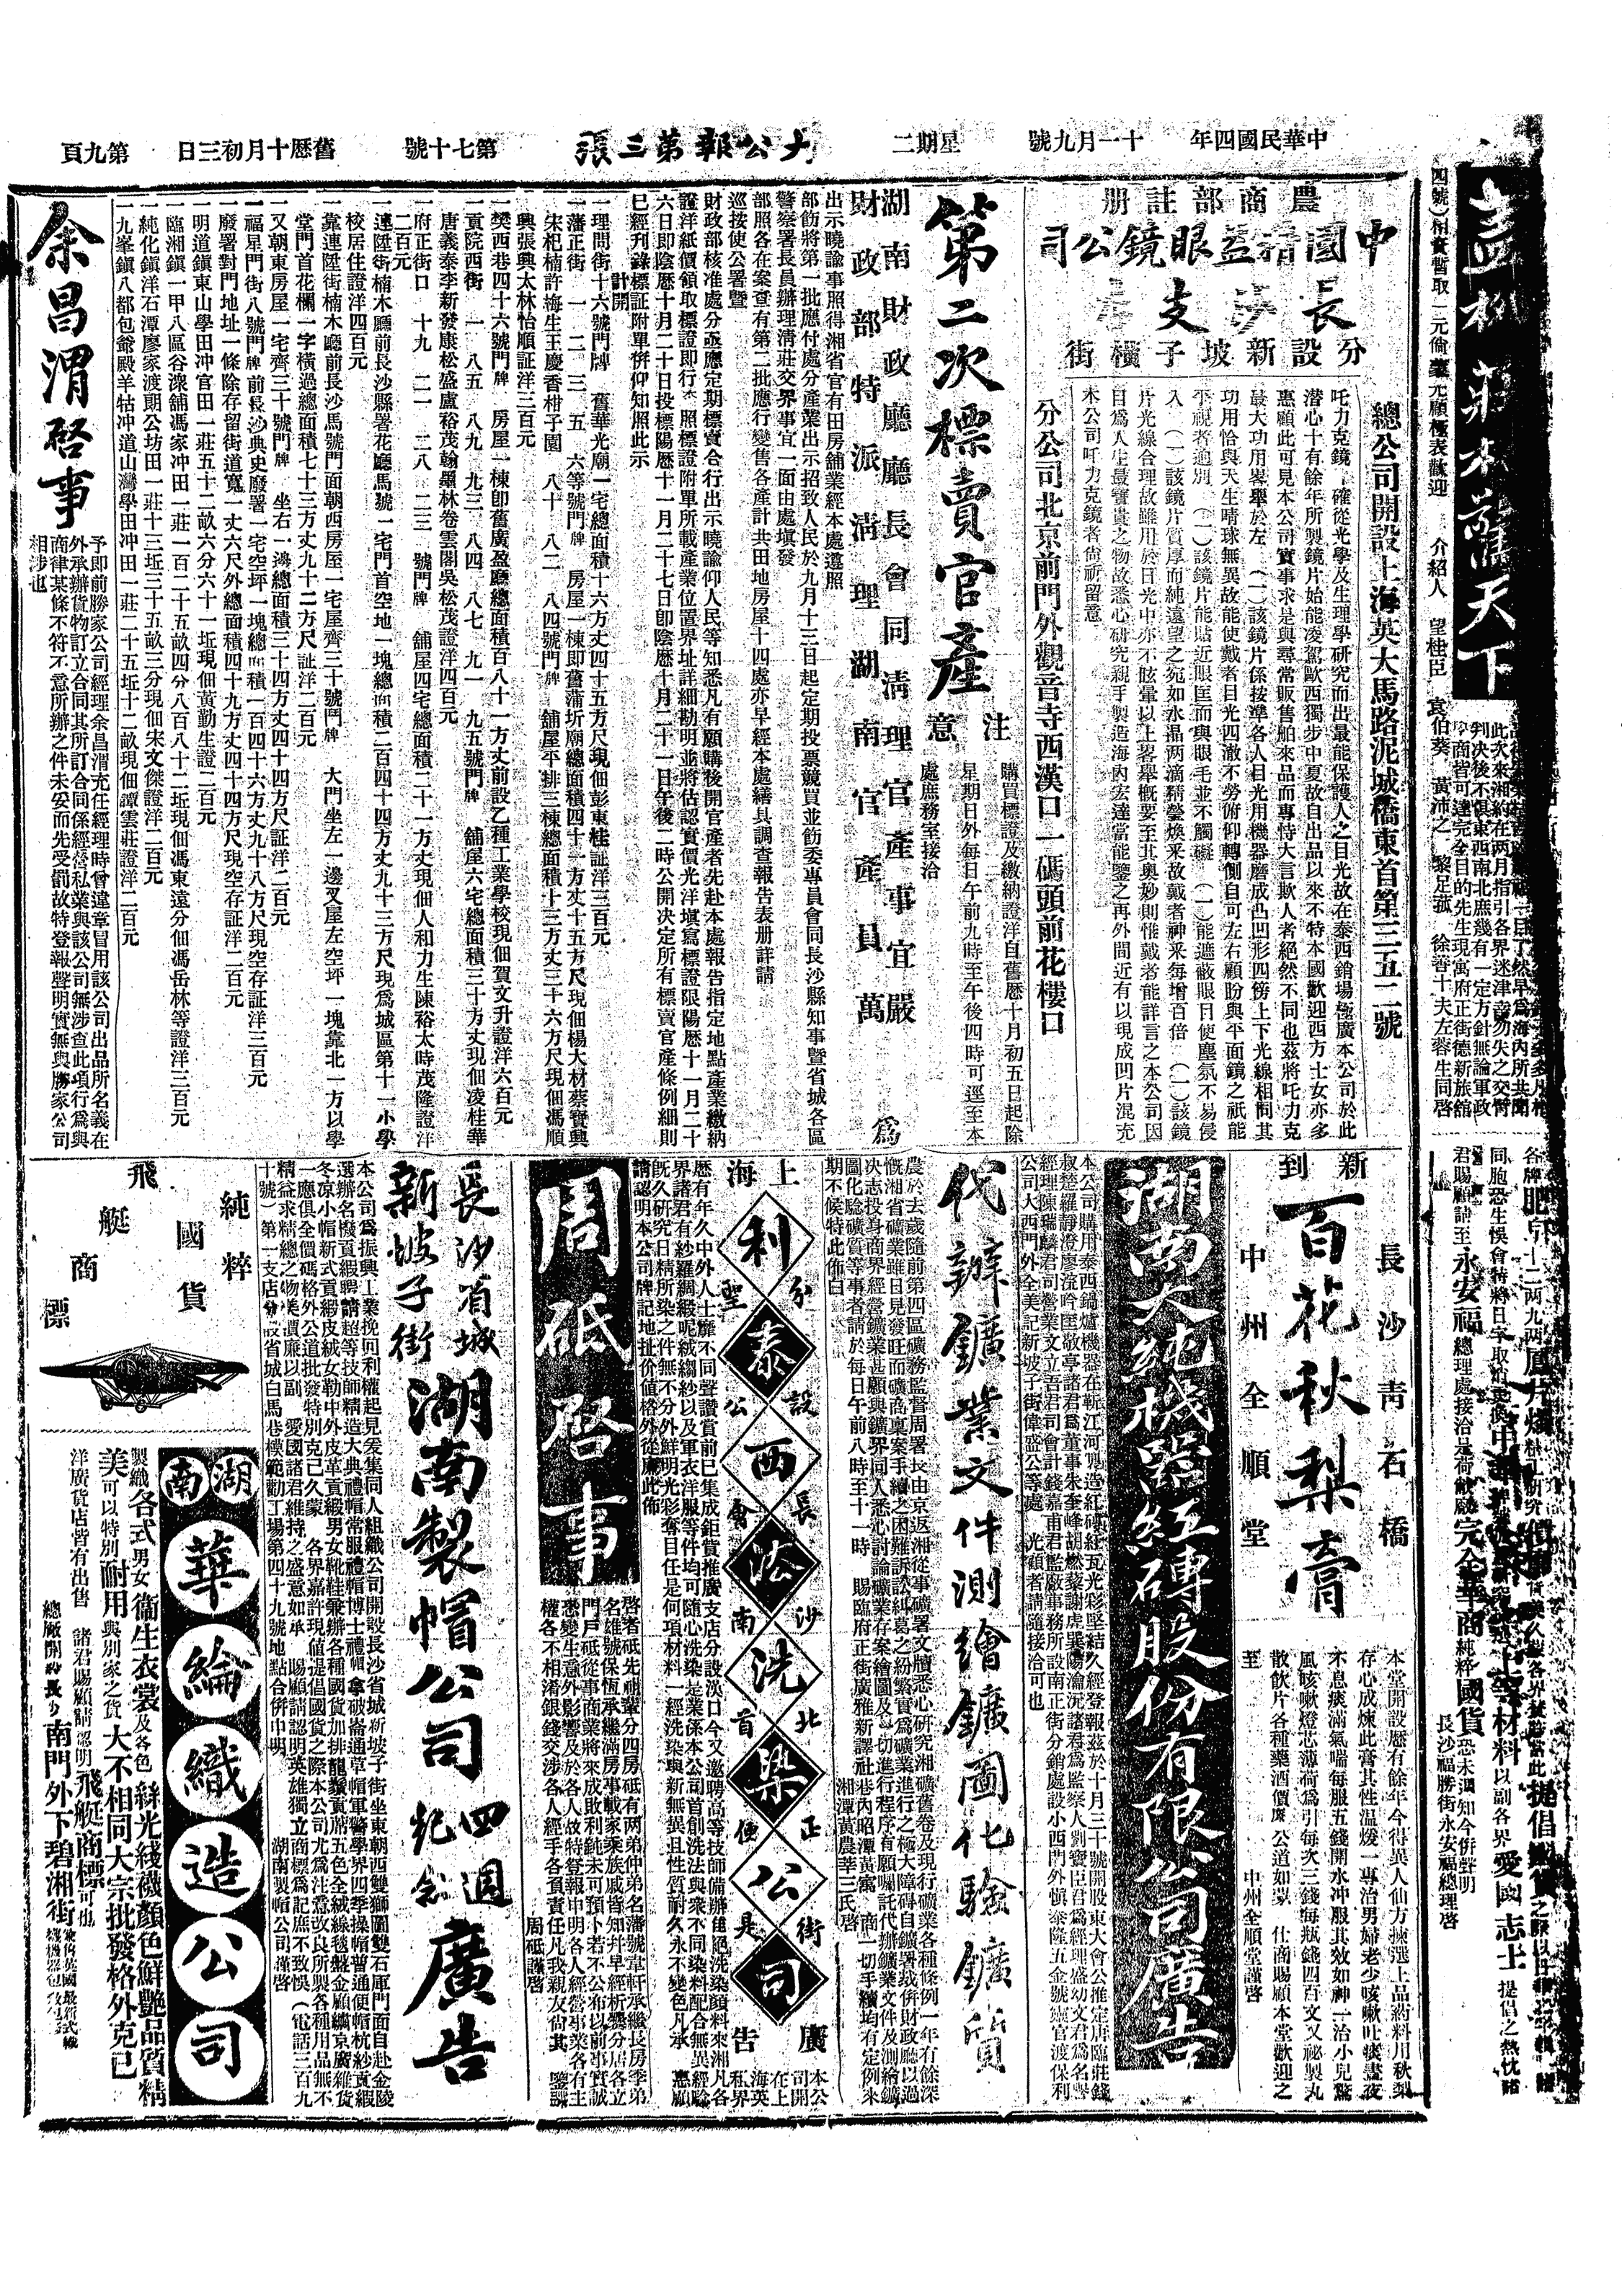 中華民國四年　十一月九號　星期二　大公報第三張　第七十號　舊歷十月初三日　第九頁
天下
介紹人　望桂臣　袁伯葵　黃沛之　黎足蓀　徐善十夫左蓉生同啓
此次來湘約在两月指引各界迷津幸勿失之交臂
判决後不俱東西南北庶幾有一定方針無論軍政
商皆可達完全目的先生現寓府正街德新旅館
農商部註册
中國精益眼鏡公司
長沙支店
分設新坡子橫街
總公司開設上海英大馬路泥城橋東首第三五二號
分公司北京前門外觀音寺西漢口一碼頭前花樓口
託力克鏡　確從光學及生理學研究而出最能保護人之目光故在泰西銷場極廣本公司於此
潛心十有餘年所製鏡片始能凌駕歐西獨步中夏故自出品以來不特本國歡迎西方士女亦多
惠顧此可見本公司實事求是與尋常販售舶來品而專恃大言欺人者絕然不同也茲將託力克
最大功用畧舉於左（一）該鏡片係按準各人目光用機器磨成凸凹形四傍上下光線相同其
功用恰與天生晴球無異故能使戴者目光四澈不勞俯仰轉側自可左右顧盼與平面鏡之祇能
平視者逈別（一）該鏡片能貼近眼匡而與眼毛並不觸礙（一）能遮蔽眼日使塵氛不易侵
入（一）該鏡片質厚而純遠望之宛如水晶两滴精瑩煥釆故戴者神釆每增百倍（一）該鏡
片光線合理故雖用於日光中亦不眩暈以上畧舉概要至其奥妙則惟戴者能詳言之本公司因
目爲人生最寶貴之物故悉心研究親手製造海內宏達當能鑒之再外間近有以現成凹片混充
本公司託力克鏡者尙祈留意
第二次標賣官產
注意
購買標證及繳納證洋自舊歷十月初五日起除
星期日外每日午前九時至午後四時可逕至本
處庶務室接洽
湖南財政廳廳長會同淸理官產事宜嚴
財政部特派淸理湖南官產專員萬　爲
出示曉諭事照得湘省官有田房舖業經本處遵照
部飭將第一批應付處分產業出示招致人民於九月十三日起定期投票競買並飭委專員會同長沙縣知事暨省城各區
警察署長員辦理淸莊交界事宜一面由處塡發
部照各在案查有第二批應行變售各產計共田地房屋十四處亦早經本處繕具調查報告表册詳請
巡按使公署暨
財政部核准處分亟應定期標賣合行出示曉諭仰人民等知悉凡有願購後開官產者先赴本處報告指定地點產業繳納
證洋紙價領取標證即行　照標證附單所載產業位置界址詳細勘明並將估認實價光洋塡寫標證限陽歷十一月二十
六日即陰歷十月二十日投標陽歷十一月二十七日卽陰歷十月二十一日午後二時公開决定所有標賣官產條例細則
已經刋錄標証附單併仰知照此示
計開
一理問街十六號門牌　舊華光廟一宅總面積十六方丈四十五方尺現佃彭東桂証洋三百元
一藩正街　一二三五　六等號門牌　房屋一棟即舊蒲圻廟總面積四十一方丈十五方尺現佃楊大材蔡寶興
宋杞楠許梅生王慶香柑子園　八十　八二　八四號門牌　舖屋平排三棟總面積十三方丈三十六方尺現佃馮順
興張興太林怡順証洋三百元
一樊西巷四十六號門牌　房屋一棟卽舊廣盈廳總面積百八十一方丈前設乙種工業學校現佃賀文升證洋六百元
一貢院西街　一八五　八九　九三　八四　八七　九一　九五號門牌　舖屋六宅總面積三十方丈現佃凌桂華
唐義泰李新發康松盛盧裕茂翰墨林卷雲閣吳松茂證洋四百元
一府正街口　十九　二一　二八　二三　號門牌　舖屋四宅總面積二十一方丈現佃人和力生陳裕太時茂隆證洋
二百元
一連陞街楠木廳前長沙縣署花廳馬號一宅門首空地一塊總面積二百四十四方丈九十三方尺現爲城區第十一小學
校居住證洋四百元
一靠連陞街楠木廳前長沙馬號門面朝西房屋一宅屋齊三十號門牌　大門坐左一邊叉屋左空坪一塊靠北一方以學
堂門首花欄一字橫過總面積七十三方丈九十二方尺証洋二百元
一又朝東房屋一宅齊三十號門牌　坐右一鴻總面積三十四方丈四十四方尺証洋二百元
一福星門街八號門牌前長沙典史廢署一宅空坪一塊總面積一百四十六方丈九十八方尺現空存証洋三百元
一廢署對門地址一條除存留街道寬一丈六尺外總面積四十九方丈四十四方尺現空存証洋二百元
一明道鎭東山學田冲官田一莊五十二畝六分六十一坵現佃黃勤生證二百元
一臨湘鎭一甲八區谷潔舖馮家冲田一莊一百二十五畝四分八百八十二坵現佃馮東遠分佃馮岳林等證洋三百元
一純化鎭洋石潭廖家渡朗公坊田一莊十三坵三十五畝三分現佃宋文傑證洋二百元
一九峯鎭八都包爺殿羊牯冲道山灣學田冲田一莊二十五坵十二畝現佃譚雲莊證洋二百元
余昌渭啓事
予即前勝家公司經理余昌渭充任經理時曾違章冒用該公司出品所名義在
外承辦貨物訂立合同其所訂合同係經營私業與該公司無涉查此項行爲與
商律某條不符不意所辦之件未妥而先受罰故特登報聲明實無與勝家公司
相涉也
新到
百花秋梨膏
長沙靑石橋
中州全順堂
本堂開設歷有餘年今得異人仙方揀選上品葯料川秋梨
存心成煉此膏其性温煖一專治男婦老少咳嗽吐痰晝夜
不息痰滿氣喘每服五錢開水冲服其效如神一治小兒驚
風咳嗽燈芯薄荷爲引每次三錢每瓶錢四百文又祕製丸
散飲片各種藥酒價廉公道如蒙　仕商賜顧本堂歡迎之
至　中州全順堂謹啓
湖南大純機器紅磚股份有限公司廣告
本公司購用泰西歸爐機器在靳江河見造紅磚紅瓦光彩堅結久經登報茲於十月三十號開股東大會公推定唐臨莊錢
叔楚羅靜澄廖流吟匡敬亭諸君爲董事朱奎峰胡燃黎謝虎巽歐陽瀹沅諸君爲監察人劉寶臣君爲經理盛幼文君爲名譽
經理陳瑞麟君司營業文立吾君司會計錢嘉甫君監廠事務所設南正街分銷處設小西門外愼泰隆五金號靈官渡保利
公司大西門外全美記新坡子街偉盛公等處　光顧者請隨接洽可也
代辦鑛業文件測繪鑛圖化驗鑛質
農於去歲隨前第四區礦務監督周署長由京返湘從事礦署文牘悉心研究湘礦舊卷及現行礦業各種條例一年有餘深
慨湘省礦業雖日見發旺而礦商稟案手續之困難訴訟糾葛之紛繁實爲礦業進行之極大障碍自鑛署裁併財政廳以過
决志投身商界經營鑛業甚願與鑛界同人悉心討論礦業存案繪圖及一切進行程序有願囑託代辦鑛業文件及測繪鑛
圖化騐礦質等事者請於每日午前八時至十一時　賜臨府正街廣雅新譯社巷內昭潭黃寓　商一切手續均有定例末
期不候特此佈白　湘潭黃農莘三氏啓
上海
利泰西法洗染公司
分設長沙北正街
聖公會南首便是
廣告
本公司開在上海英界私界
歷有年久中外人士靡不同聲讚賞前已集成鉅貨推廣支店分設漢口今又邀聘高等技師備辦佳絕洗染顏料來湘凡各
界諸君有紗羅綢緞呢絨縐紗以及軍衣洋服等件均可隨心洗染是業係本公司首創洗法與衆不同染料配合無異經騐
旣久研究日精所染之件無不分外鮮明光彩奪目任是何項材料一經洗染與新無異且性質耐久永不變色凡承　惠顧
請認明本公司牌記地扯价値格外從廉此佈
周砥啓事
啓者砥先祖輩分四房砥有两弟仲弟名藩號葦軒承繼長房季弟
名雄號保恆承繼滿房事載家乘族戚皆知幷早經析爨分居各立
門戶砥從事商業將來成敗利鈍未可預卜若不公布以前事實誠
恐變生意外影響及於各人故特登報申明各人經營事業各有主
權各不相淆銀錢交涉各人經手各負責任凡我親友尙其　鑒諒
周砥謹啓
長沙省城新坡子街湖南製帽公司四週紀念廣告
本公司爲振興工業挽回利權起見爰集同人組織公司開設長沙省城新坡子街坐東朝西雙獅圖雙石庫門面自赴金陵
選辦名機貢緞聘請超等技師精造大典禮帽常服禮帽博士禮帽拿破崙通草帽軍警學界四季操帽普通便帽杭紗貢緞
冬凉小帽新式貢緞皮絨女勒中外皮革貢緞男女靴鞋兼辦各種國貨加排龍鬚貢席五色全絨線毯盤金顧繡京廣雜貨
一應俱全價碼格外公道批發特別克己久蒙　各界嘉許現値提倡國貨之際本公司尤爲注意改良所製各種用品無不
精益求精總之物美價廉以副　愛國諸君維持之盛意如承　賜顧請認明英雄獨立商標爲記庶不致悞（電話三百九
十號）第一支店分設省城白馬巷模範勸工場第四十九號地點合併申明　湖南製帽公司謹啓
純粹國貨
飛艇商標
湖南華綸織造公司
製織各式男女衞生衣裳及各色絲光綫襪顏色鮮艷品質精
美可以特別耐用與別家之貨大不相同大宗批發格外克己
洋廣貨店皆有出售　諸君賜顧請認明飛艇商標可也
總廠開設長沙南門外下碧湘街
長沙福勝街永安福總理啓